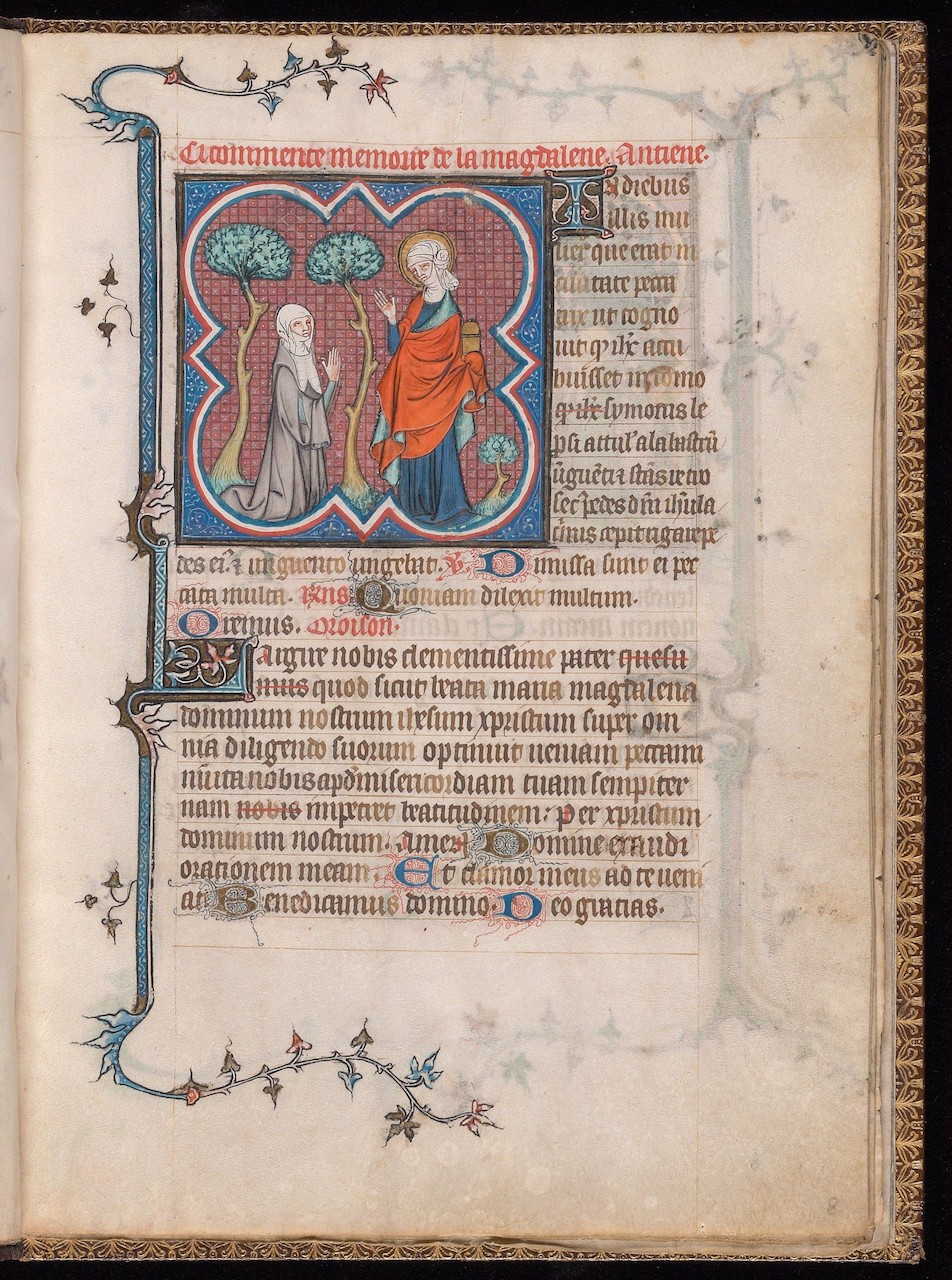 Ci commence memoire de la magdalene. Antiene.
In diebus
illis mu
lier que erat in
ciuitate pecca
trix ut cogno
uit
buisset in domo
symonis le
psi attul' alabastrũ
ũguẽti ⁊ stãs retro
sec' pedes dñi ihũ la
crimis cepit rigare pe
des ei9 ⁊ unguento ungebat. V. Dimissa sunt ei pec
cata multa. Rns Quoniam dilexit multum.
Oremus. Oroison.
Largire nobis clementissime pater quesu
mus quod sicut beata maria magdalena
dominum nostrum ihesum xpristum super om
nia diligendo suorum optinuit ueniam peccami
nũ ita nobis apđ misericordiam tuam sempiter
nam nobis impetret beatitudinem. Per xpristum
dominum nostrum. Amen. Domine exaudi
orationem meam. Et clamor meus ad te ueni
at. Benedicamus domino. Deo gracias.
8